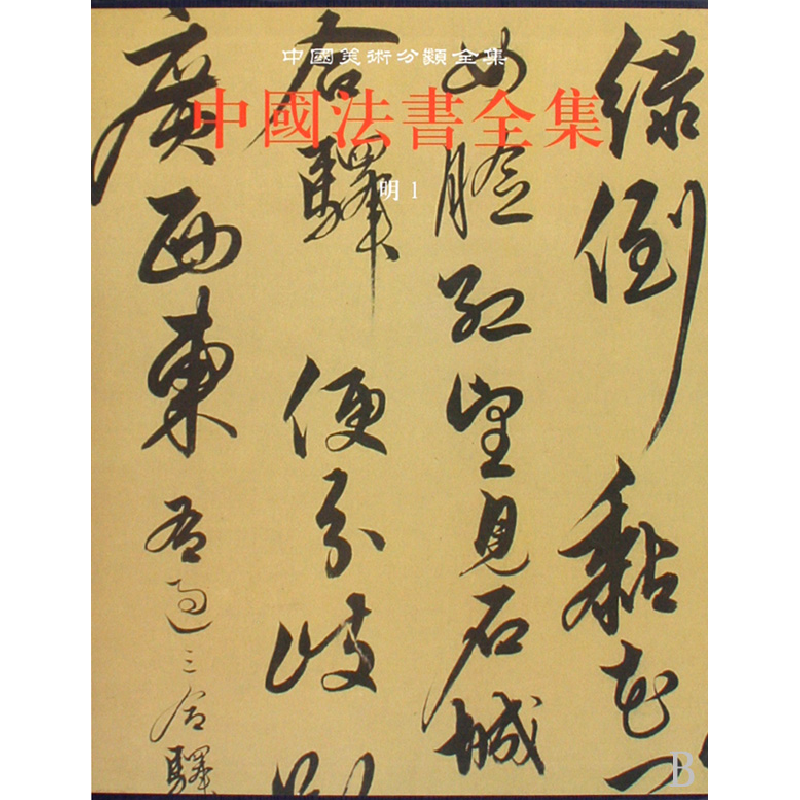 中國美術分類全集
中國法書全集
明 1
緑倒黏花
如臉紅望見石城
驛便分岐
廣西東
過三驛
B